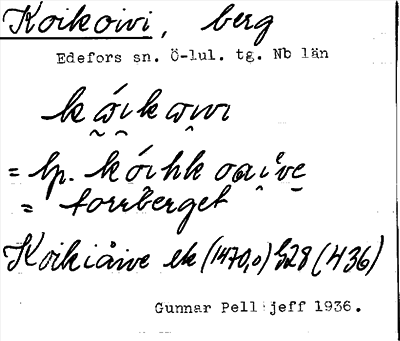 Koikoivi, berg
Edefors sn. Ö-lul. tg. Nb län
kɷ́ikɷivi
= lp. kóihk oaive
= torrberget
Koikiåive ek (1470,0) 528 (436)
Gunnar Pelljeff 1936.